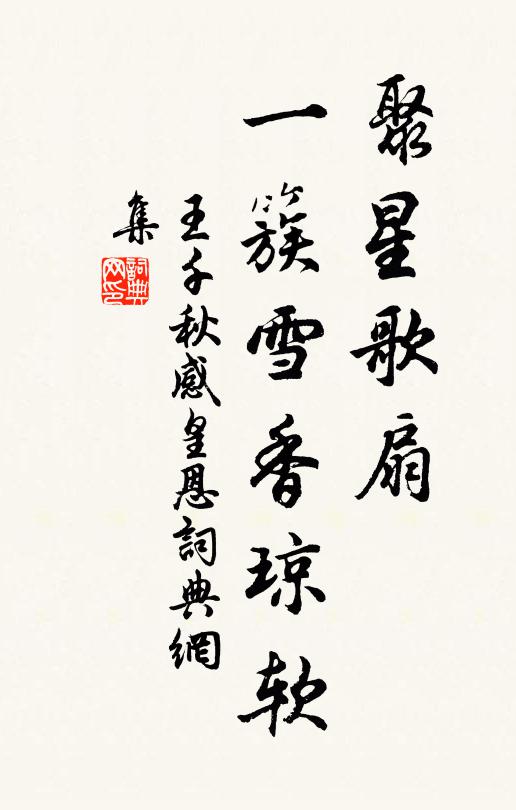 聚星歌扇
一簇雪香琼软
王千秋感皇恩詞典網
集
詞典网印